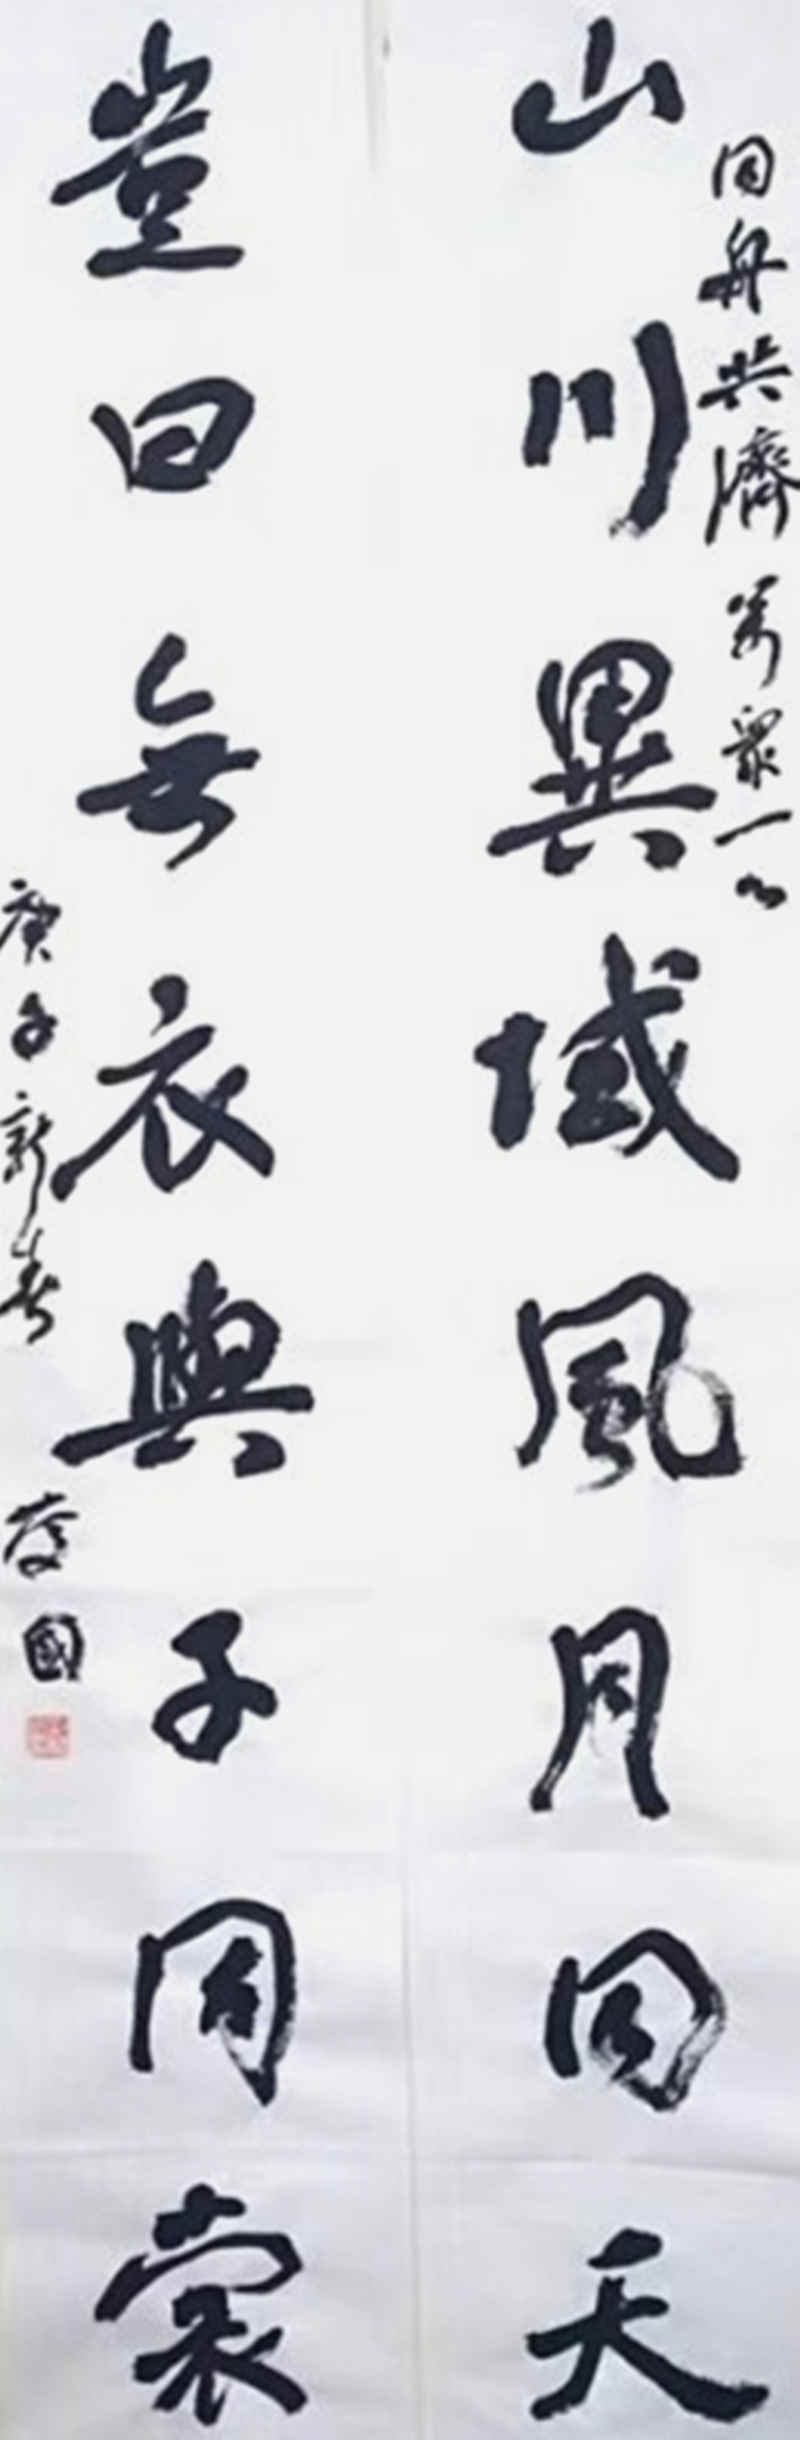 同舟共濟萬衆一心
山川異域風月同天
豈曰無衣與子同裳
庚子新春
國